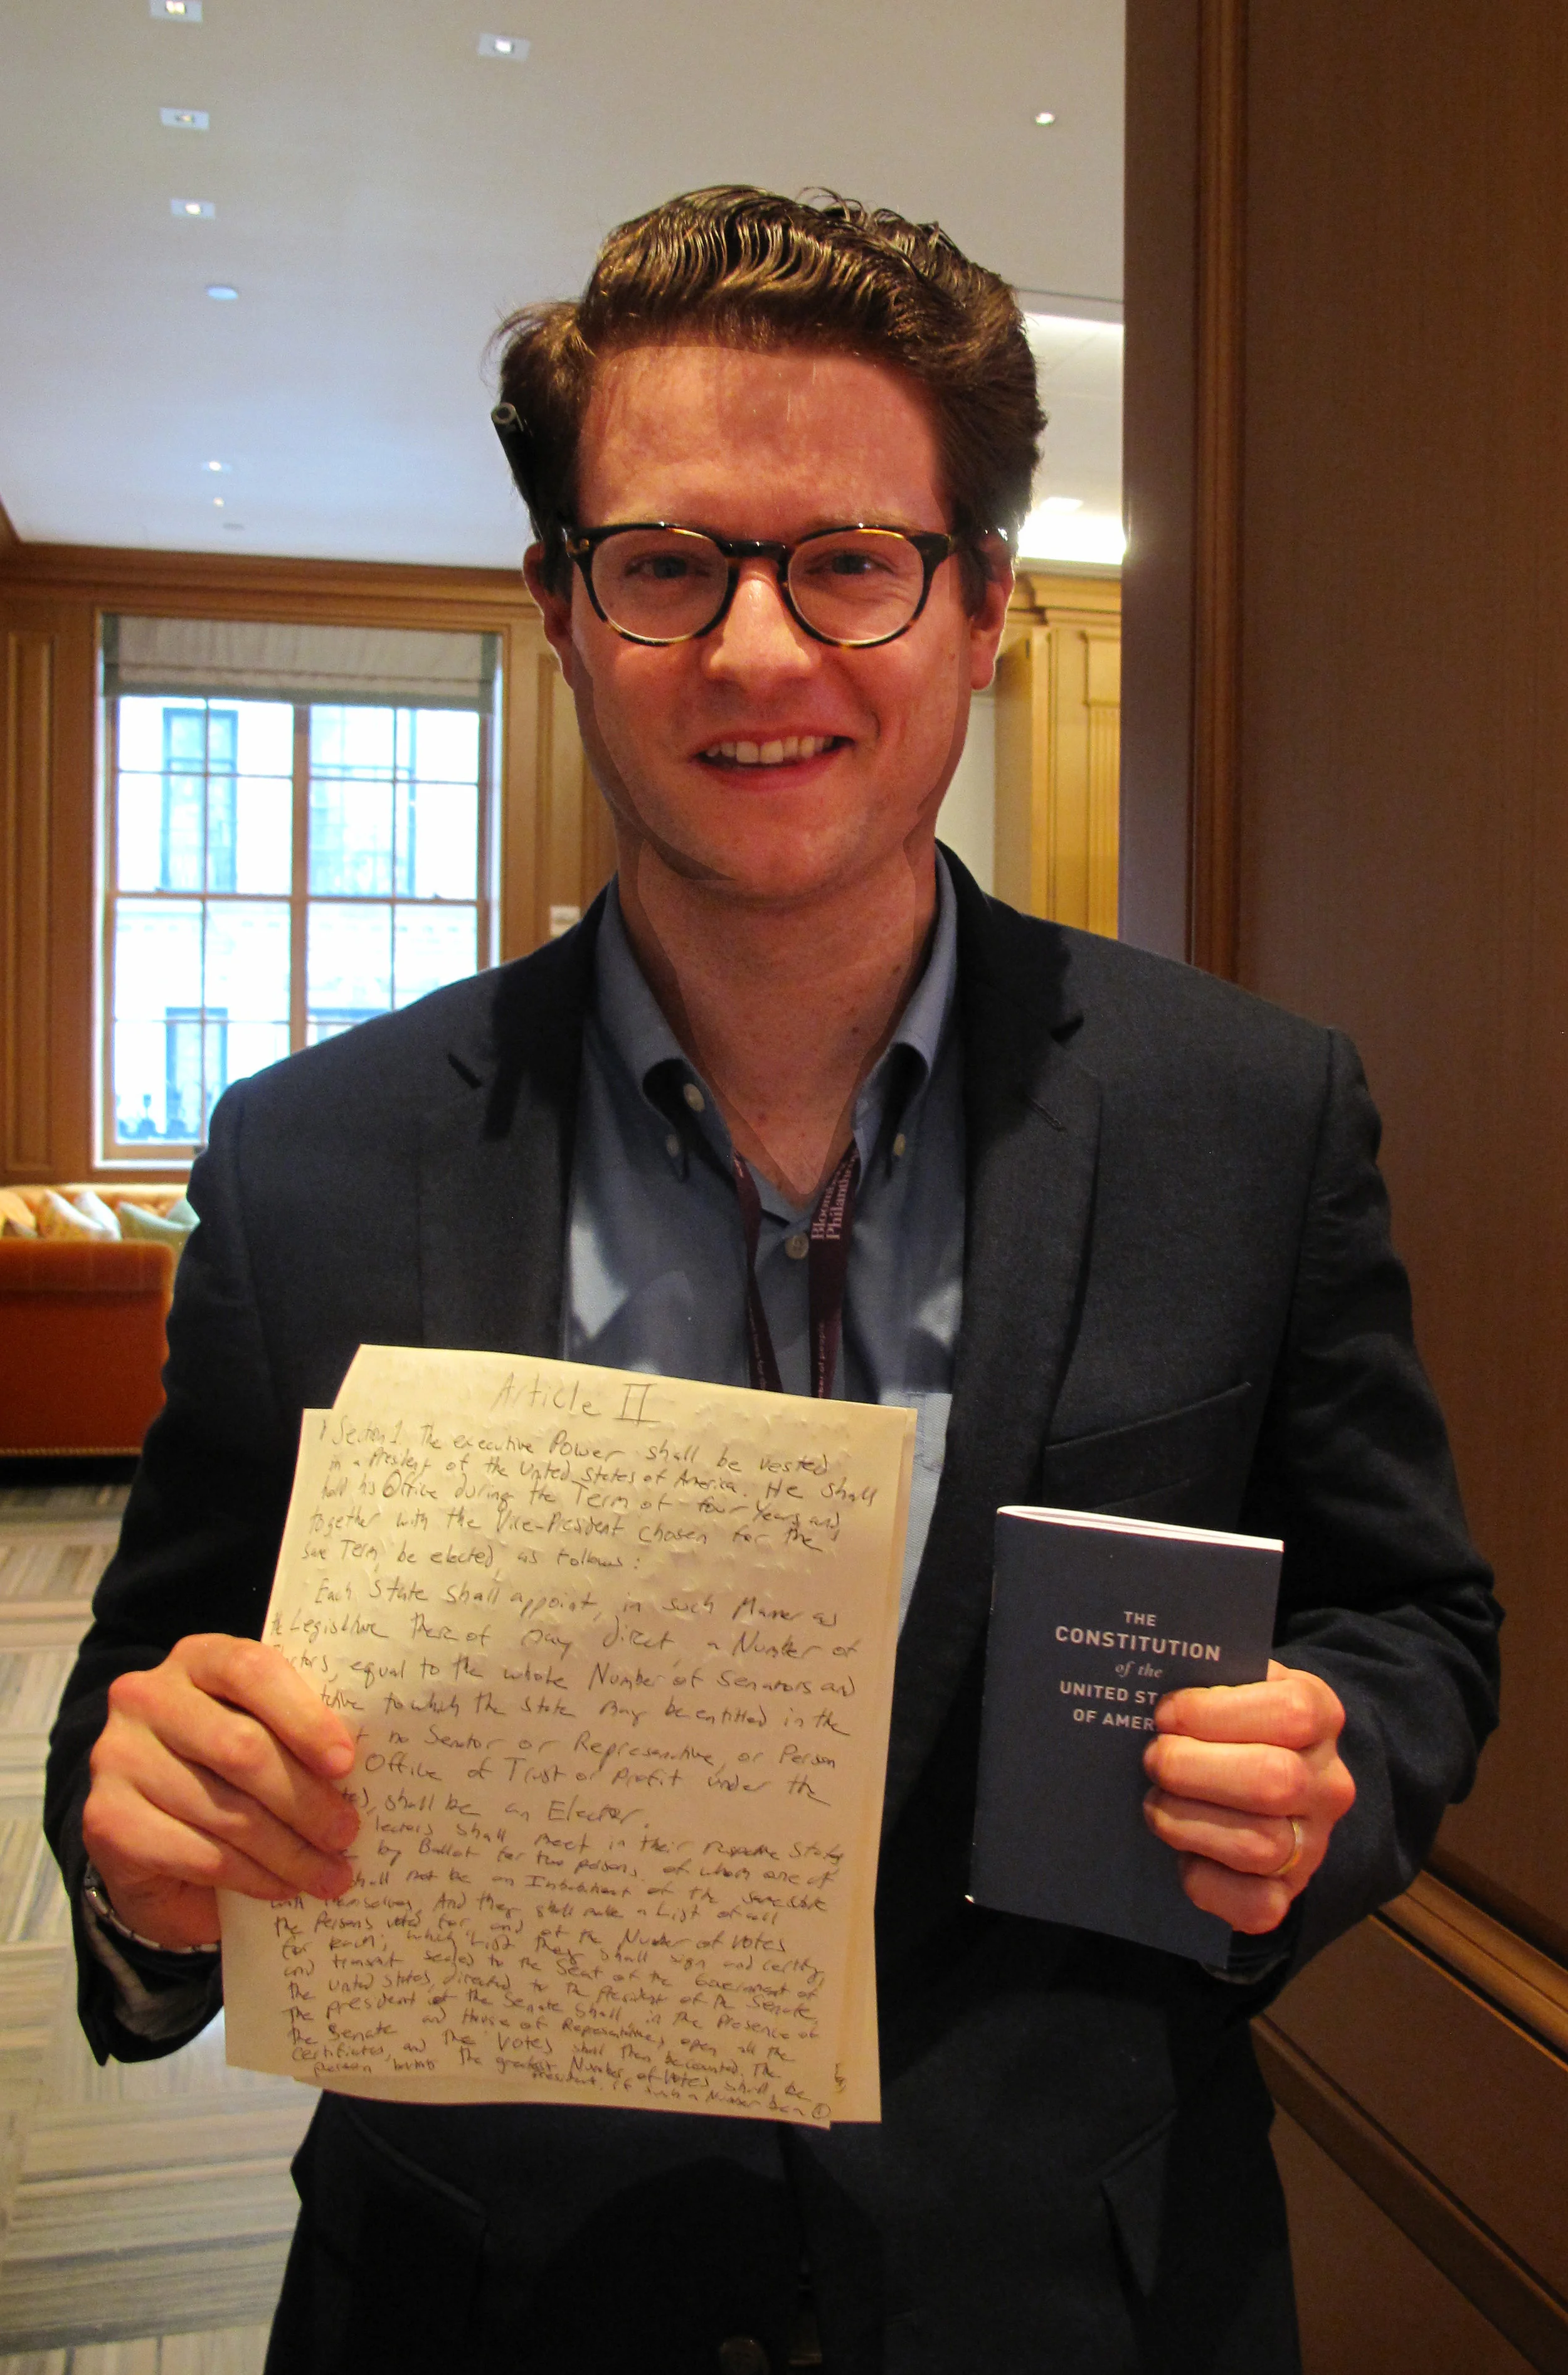 Bloom
Philanth
Article II
Section 1. The executive Power shall be vested
in a President of the United States of America. He shall
hold his Office during the Term of four Years and
together with the Vice-President chosen for the
same Term, be elected, as follows:
Each State shall appoint, in such Manner as
the Legislature thereof may direct, a Number of
ctors, equal to the whole Number of Senators and
tative to which the State may be entitled in the
t no Senator or Representive, or Person
Office of Trust or Profit under the
tes, shall be an Elector.
lectors shall meet in their respective States
by Ballot for two persons, of whom one of
shall not be an Inhabitant of the same state
with themselves. And they shall make a List of all
the Persons voted for, and of the Number of Votes
for each; which List they shall sign and certify,
and transmit sealed to the Seat of the Government of
the United States, directed to the President of the Senate.
The president of the Senate shall, in the presence of
the Senate and House of Representatives, open all the
certificates, and the Votes shall then be counted. The
person the greatest Number of Votes shall be
President, if such a Number be a
THE
CONSTITUTION
of the
UNITED ST
OF AMER